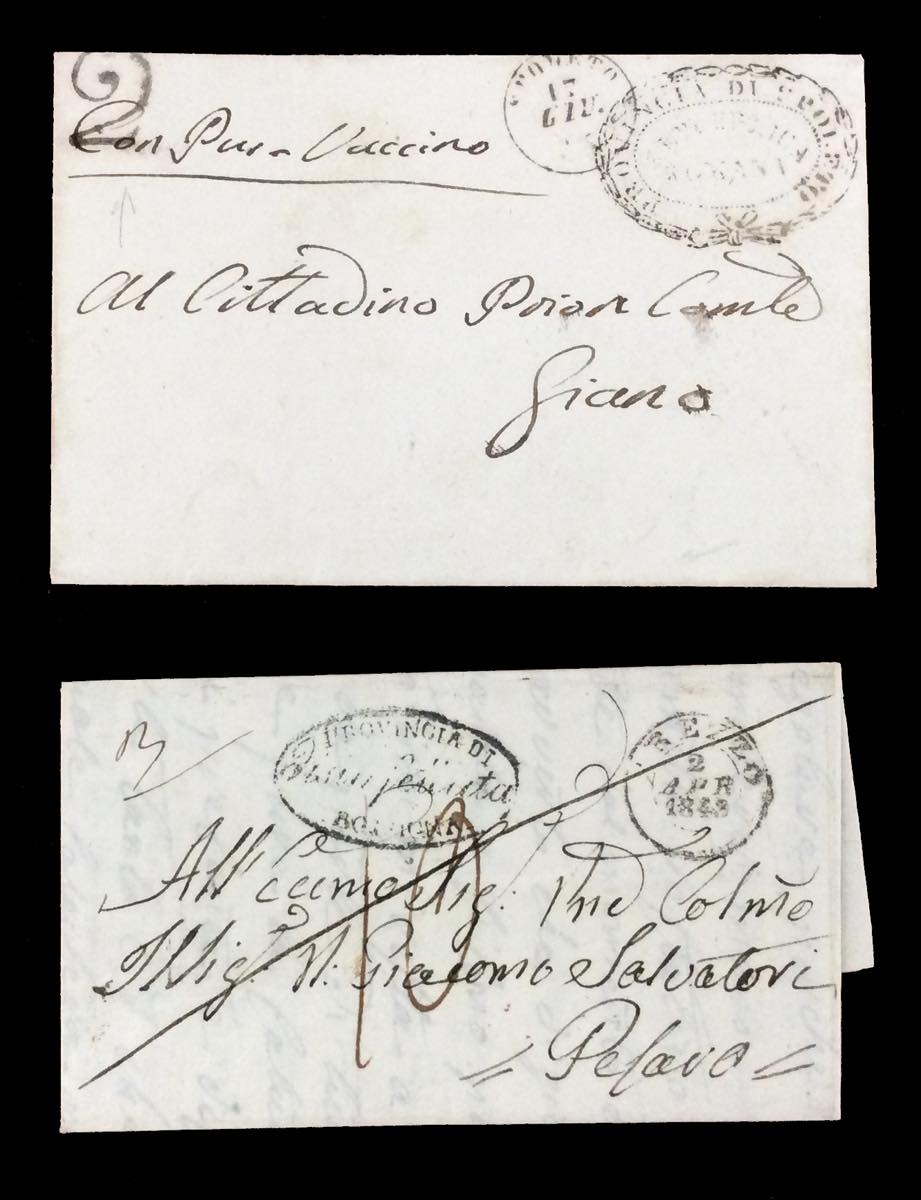 2
SPOLETO
17
GIU.
PROVINCIA DI SPOLETO
REPUBBLICA
ROMANA
Con Pus-Vaccino
Al Cittadino Prior Comle
Giano
PROVINCIA DI
Sanfeünta
BOLOGNA
AREZZO
2
APR
1843
10
All'
Sig: Colmo
Il Sig: Giacomo Salvatori
= Pesaro =